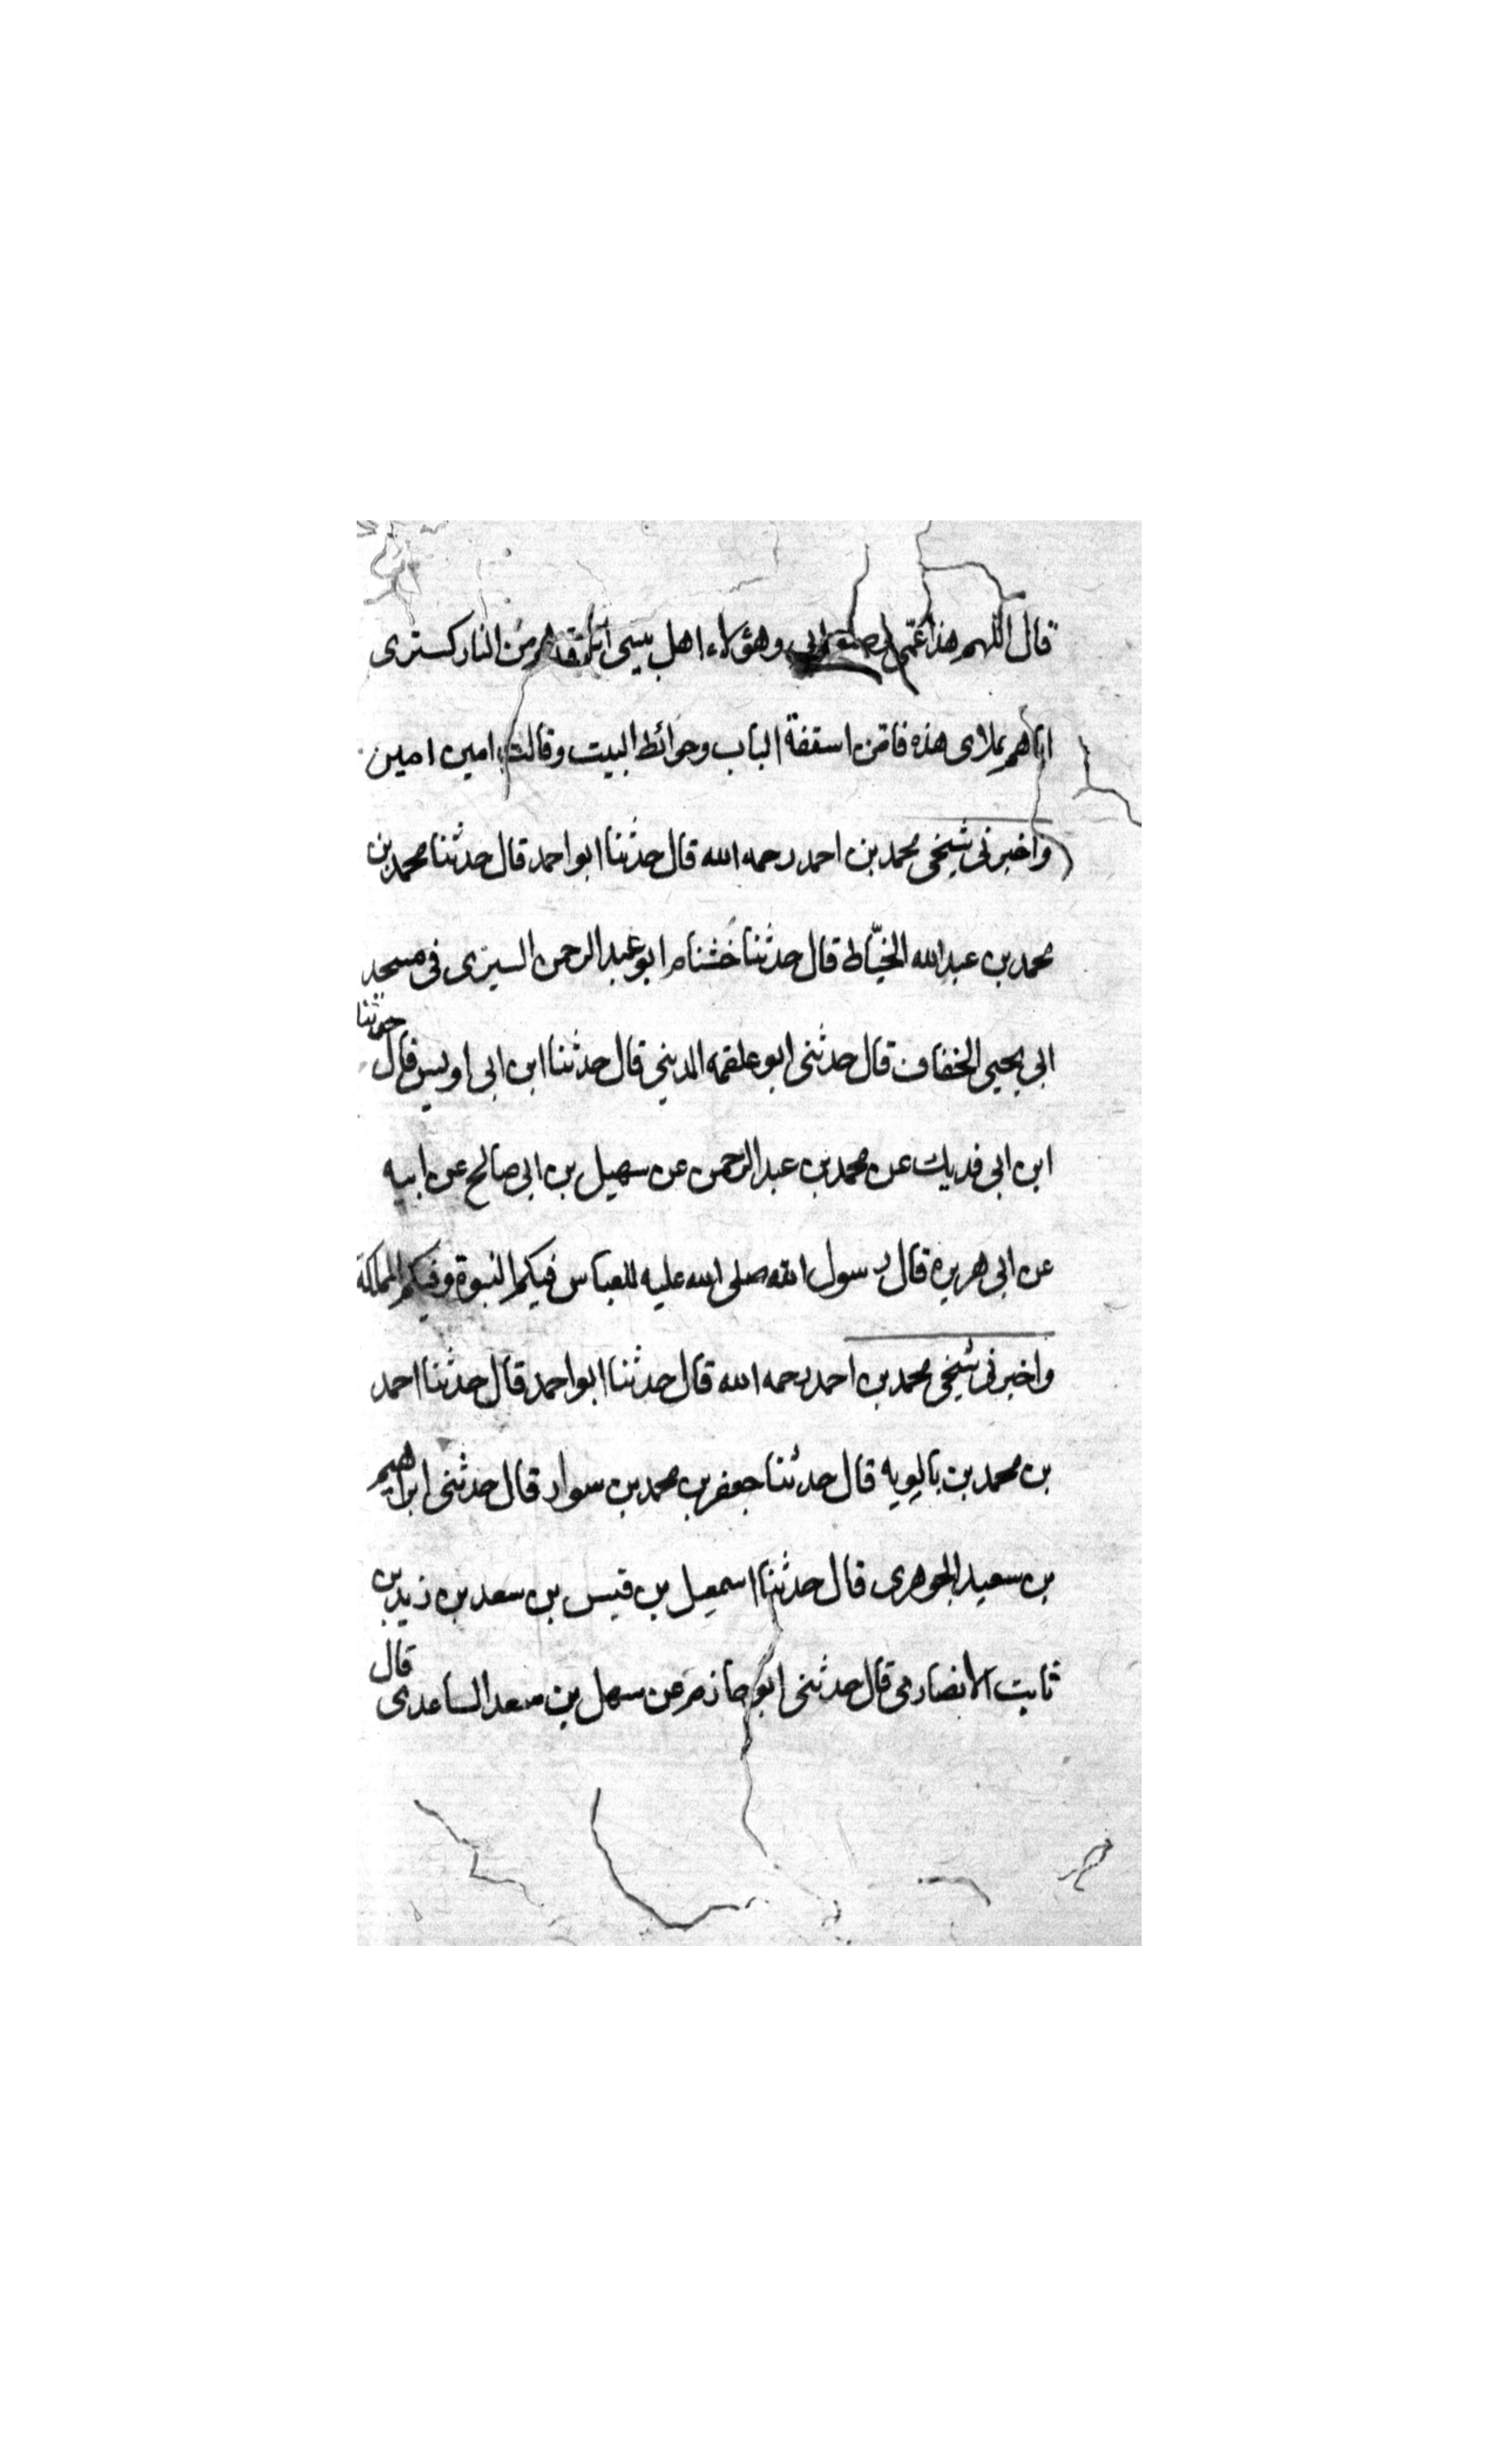 قال اللهم هذا عمّي وصنو ابي وهؤلاء اهل بيتى استرهم من النار كسترى
اياهم بملاى هذه فامّن اسقفة الباب وحوائط البيت وقالت امين امين
واخبرنى شيخى محمد بن احمد رحمه الله قال حدثنا ابو احمد قال حدثنا محمد بن
محمد بن عبد الله الخيّاط قال حدثنا خشنام ابو عبد الرحمن السيزى فى مسجد
ابى يحيى الخفاف قال حدثنى ابو علقمه المدينى قال حدثنا ابن ابى اويس قال حدثنا
ابن ابى فديك عن محمد بن عبد الرحمن عن سهيل بن ابى صالح عن ابيه
عن ابى هريره قال رسول الله صلى الله عليه للعباس فيكم النبوة وفيكم المملكة
واخبرنى شيخى محمد بن احمد رحمه الله قال حدثنا ابو احمد قال حدثنا احمد
بن محمد بن بالويه قال حدثنا جعفر بن محمد بن سوار قال حدثنى ابراهيم
بن سعيد الجوهرى قال حدثنا اسمعيل بن قيس بن سعد بن زيد بن
ثابت الانصارى قال حدثنى ابو حازم عن سهل بن سعد الساعدى قال